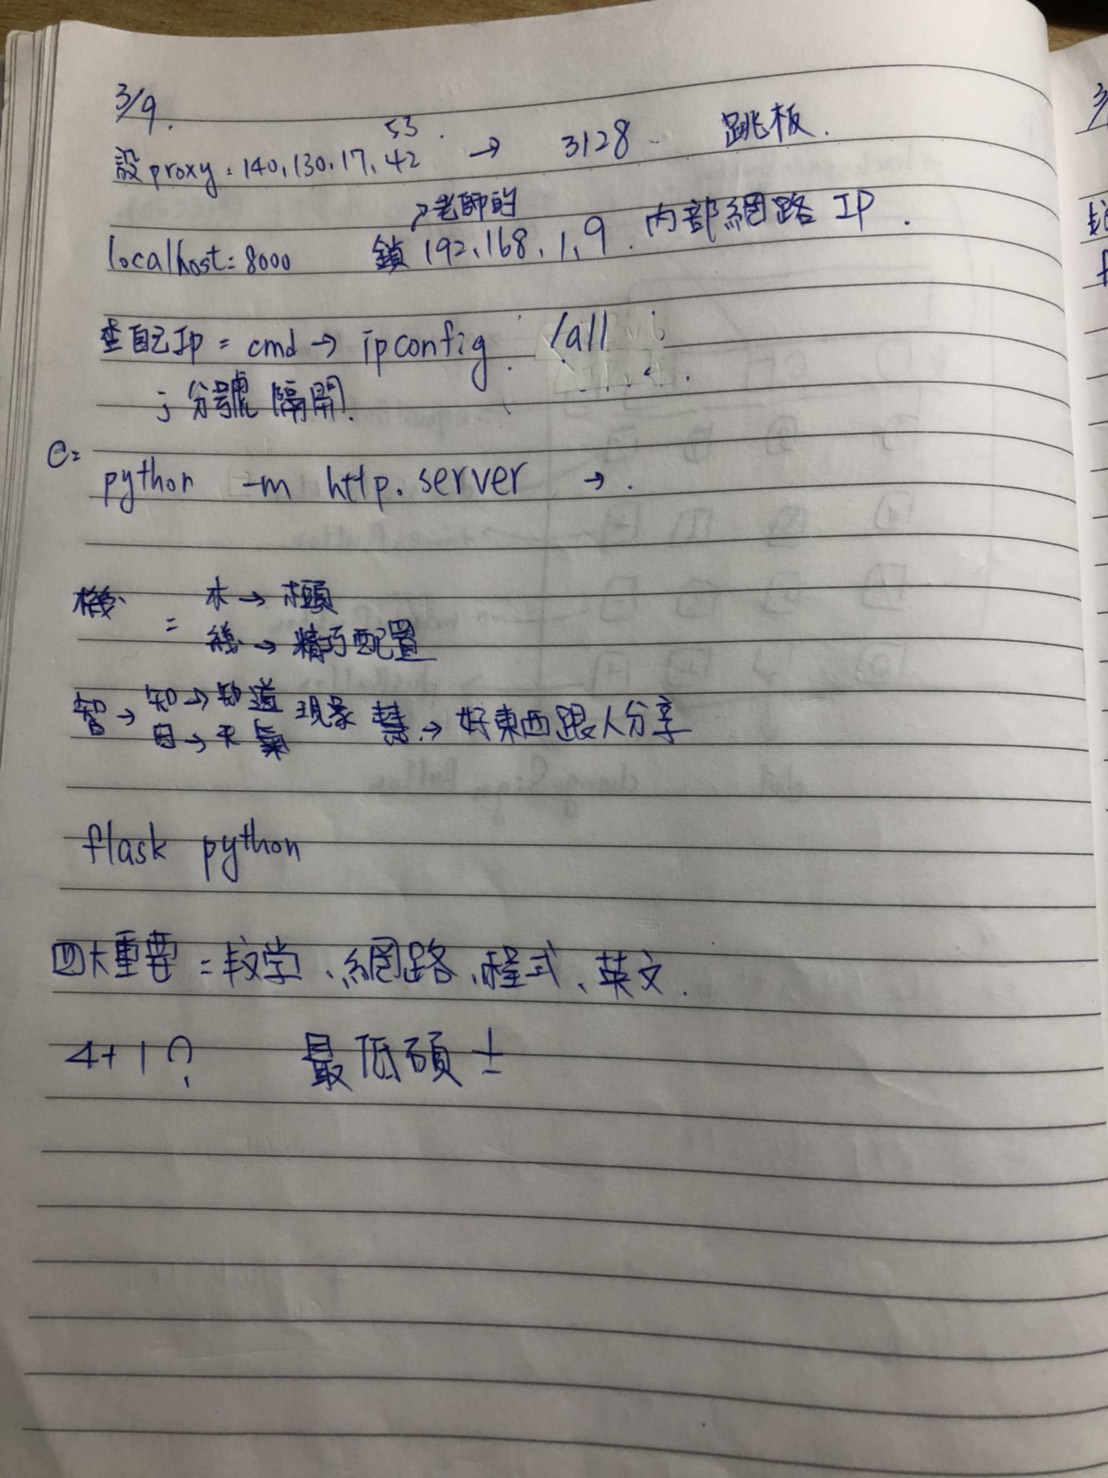 3/9.
53.
設proxy: 140.130.17.42 → 3128 跳板.
↗老師的
localhost:8000 鎖 192.168.1.9. 內部網路 IP.
查自己Ip = cmd → ipconfig /all
; 分號 隔開.
C:
python -m http.server → .
機 = 木 →
幾 → 精巧配置
智 → 知 → 知道 現象 慧 → 好東西跟人分享
日 → 天氣
flask python
四大重要 = 数学、網路、程式、英文.
4+1? 最低碩士